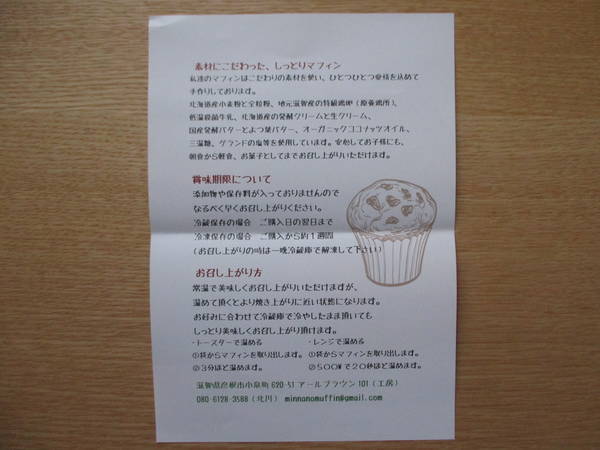 素材にこだわった、しっとりマフィン
私達のマフィンはこだわりの素材を使い、ひとつひとつ愛情を込めて
手作りしております。
北海道産小麦粉と全粒粉、地元滋賀産の特級鶏卵（原養鶏所）、
低温殺菌牛乳、北海道産の発酵クリームと生クリーム、
国産発酵バターとよつ葉バター、オーガニックココナッツオイル、
三温糖、ゲランドの塩等を使用しています。安心してお子様にも、
朝食から軽食、お菓子としてまでお召し上がりいただけます。
賞味期限について
添加物や保存料が入っておりませんので
なるべく早くお召し上がりください。
冷蔵保存の場合　ご購入日の翌日まで
冷凍保存の場合　ご購入から約１週間
（お召し上がりの時は一晩冷蔵庫で解凍して下さい）
お召し上がり方
常温で美味しくお召し上がりいただけますが、
温めて頂くとより焼き上がりに近い状態になります。
お好みに合わせて冷蔵庫で冷やしたまま頂いても
しっとり美味しくお召し上がり頂けます。
・トースターで温める　・レンジで温める
①袋からマフィンを取り出します。①袋からマフィンを取り出します。
②３分ほど温めます。　②500Wで20秒ほど温めます。
滋賀県彦根市小泉町 620-51 アールブラウン 101（工房）
080-6128-3588（北川）　minnanomuffin@gmail.com